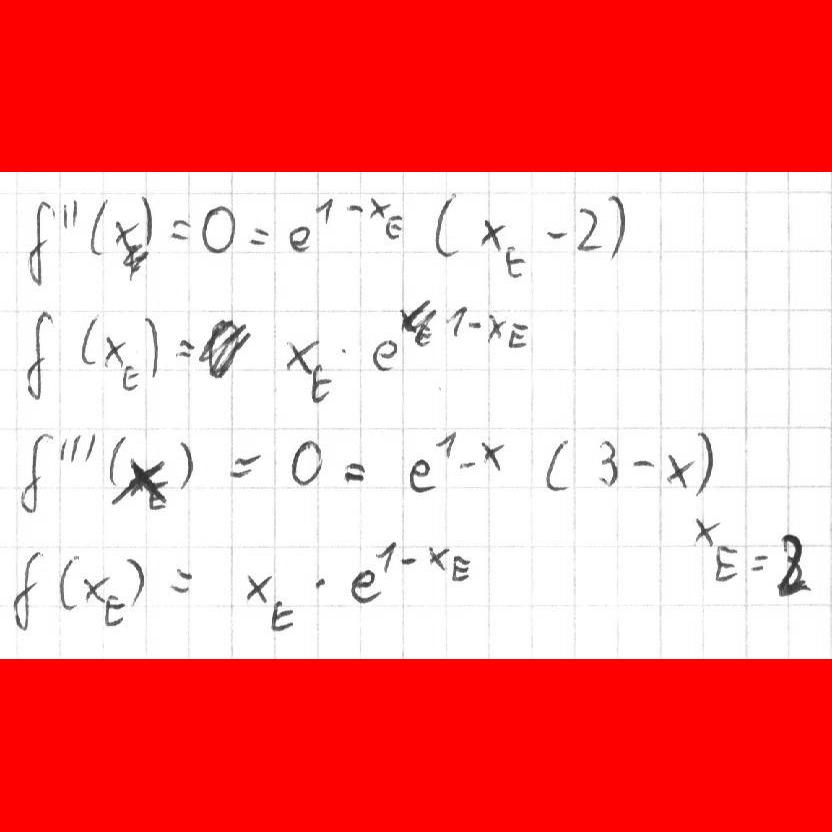 f''(x_E) = 0 = e^{1-x_E} (x_E - 2)
f(x_E) = x_E · e^{1-x_E}
f'''(x_E) = 0 = e^{1-x} (3-x)
x_E =
f(x_E) = x_E · e^{1-x_E}